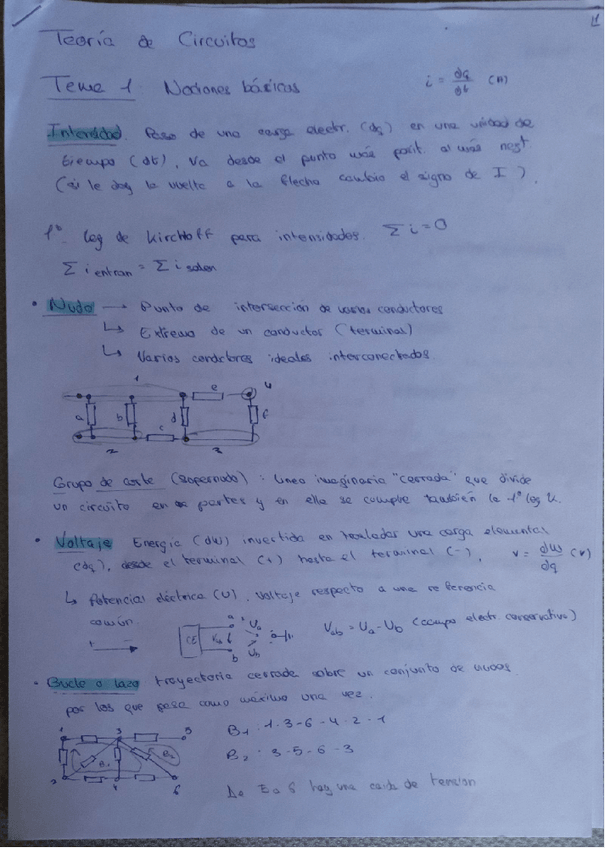 Teoría de Circuitos
Tema 1. Nociones básicas
i = dq/dt (A)
Intensidad. Paso de una carga electr. (dq) en una unidad de
tiempo (dt), va desde el punto más posit. al más negt.
(si le doy la vuelta a la flecha cambio el signo de I).
1ª ley de Kirchoff para intensidades. Σ i = 0
Σ i entran = Σ i salen
• Nudo → Punto de intersección de varios conductores
↳ Extremo de un conductor (terminal)
↳ Varios conductores ideales interconectados.
1 e 4
a b d f
c
2 3
Grupo de corte (supernudo): linea imaginaria "cerrada" que divide
un circuito en partes y en ella se cumple también la 1ª ley K.
• Voltaje Energía (dw) invertida en trasladar una carga elemental
(dq), desde el terminal (+) hasta el terminal (-). v = dw/dq (v)
↳ Potencial eléctrico (U). Voltaje respecto a una referencia
común.
+ -
a Ua
b Ub
Uab = Ua - Ub (campo electr. conservativo)
• Bucle o lazo trayectoria cerrada sobre un conjunto de nudos
por los que pasa como máximo una vez.
1 3 5
B1 B2
2 4 6
B1 · 1-3-6-4-2-1
B2 · 3-5-6-3
hay una caida de tension